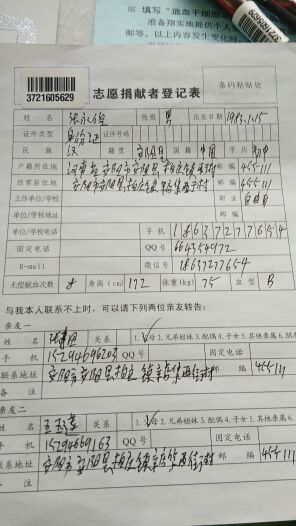 ※ 填写“造血干细胞
准备翔实地提供个人
邮等。以上内容发生变化时
3721605629
条码粘贴处
志愿捐献者登记表
姓名 性别 男 出生日期 1983.1.15
证件类型 身份证 证件号码
民族 汉 籍贯 安阳县 国籍 中国 学历 初中
户籍所在地 河南省安阳市安阳县 邮编 455111
经常居住地 安阳市安阳县 邮编 455111
工作单位/学校 职业 自由
单位/学校地址 邮编
单位/学校电话 手机 18637277654
固定电话 QQ号 664354972
E-mail 微信号 18637277654
无偿献血次数 身高(cm) 172 体重(kg) 75 血型 B
与我本人联系不上时，可以请下列两位亲友转告：
亲友一
姓名 关系 1.父母 2.兄弟姐妹 3.配偶 4.子女 5.其他亲属 6.朋
手机 15294696203 QQ号 固定电话
联系地址 安阳市安阳县 邮编 455111
备注
亲友二
姓名 关系 1.父母 2.兄弟姐妹 3.配偶 4.子女 5.其他亲属 6.
手机 15294669163 QQ号 固定电话
联系地址 安阳市安阳县 邮编 455111
备注